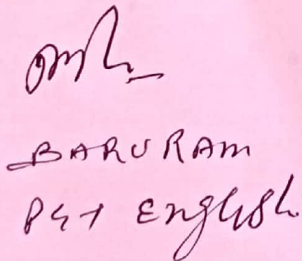 BARURAM
PGT English